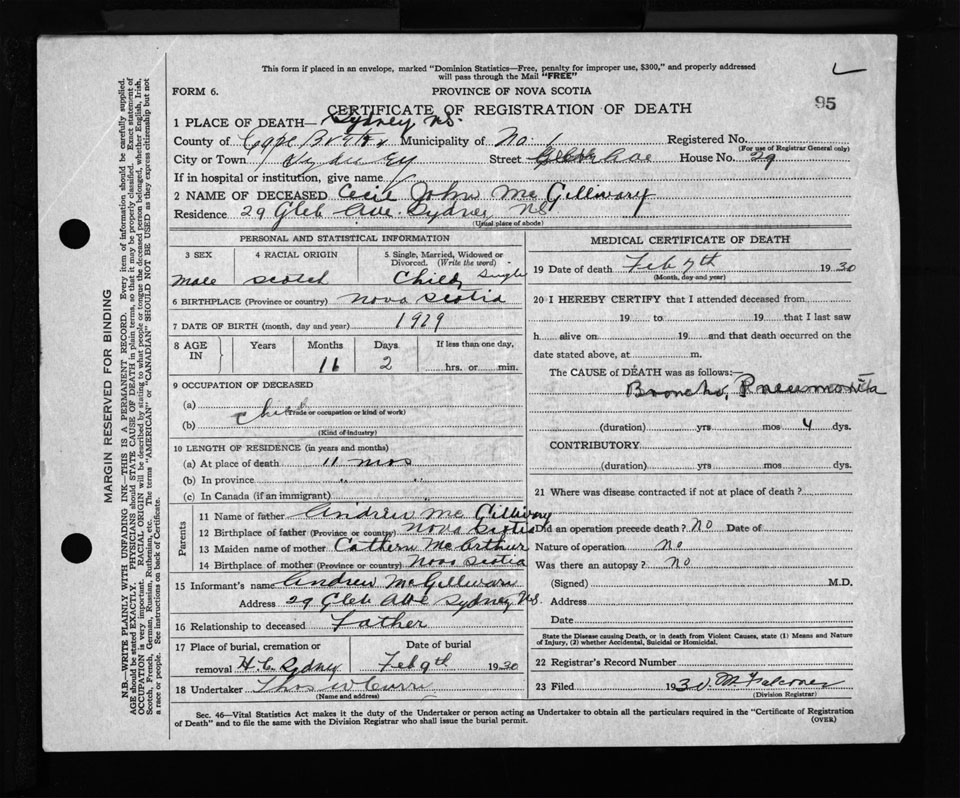 This form if placed in an envelope, marked "Dominion Statistics—Free, penalty for improper use, $300," and properly addressed
will pass through the Mail "FREE"
FORM 6.
PROVINCE OF NOVA SCOTIA
95
CERTIFICATE OF REGISTRATION OF DEATH
1 PLACE OF DEATH— Sydney N.S.
County of Cape Breton Municipality of No. Registered No.
(For use of Registrar General only)
City or Town Sydney Street Gleb Ave House No. 29
If in hospital or institution, give name
2 NAME OF DECEASED Cecil John Mc Gillivary
Residence 29 Gleb Ave. Sydney NS
(Usual place of abode)
PERSONAL AND STATISTICAL INFORMATION
3 SEX 4 RACIAL ORIGIN 5 Single, Married, Widowed or Divorced. (Write the word)
male scotch Child Single
6 BIRTHPLACE (Province or country) Nova Scotia
7 DATE OF BIRTH (month, day and year) 1929
8 AGE IN Years Months Days If less than one day,
11 2 hrs. or min.
9 OCCUPATION OF DECEASED
(a)
(Trade or occupation or kind of work)
(b) Child
(Kind of industry)
10 LENGTH OF RESIDENCE (in years and months)
(a) At place of death 11 mos
(b) In province " "
(c) In Canada (if an immigrant) "
Parents
11 Name of father Andrew Mc Gillivary
12 Birthplace of father (Province or country) Nova Scotia
13 Maiden name of mother Cathern McArthur
14 Birthplace of mother (Province or country) Nova Scotia
15 Informant's name Andrew McGillivary
Address 29 Gleb Ave Sydney N.S.
16 Relationship to deceased Father
17 Place of burial, cremation or Date of burial
removal H.C. Sydney Feb 9th 1930
18 Undertaker Thos W Curri
(Name and address)
MEDICAL CERTIFICATE OF DEATH
19 Date of death Feb 7th 1930
(Month, day and year)
20 I HEREBY CERTIFY that I attended deceased from
19 to 19 that I last saw
h alive on 19 and that death occurred on the
date stated above, at m.
The CAUSE of DEATH was as follows:—
Broncho, Pneumonia
(duration) yrs mos 4 dys.
CONTRIBUTORY
(duration) yrs mos dys.
21 Where was disease contracted if not at place of death?
Did an operation precede death? no Date of
Nature of operation no
Was there an autopsy? no
(Signed) M.D.
Address
Date
State the Disease causing Death, or in death from Violent Causes, state (1) Means and Nature
of Injury, (2) whether Accidental, Suicidal or Homicidal.
22 Registrar's Record Number
23 Filed 1930 M Falconer
(Division Registrar)
Sec. 46—Vital Statistics Act makes it the duty of the Undertaker or person acting as Undertaker to obtain all the particulars required in the "Certificate of Registration
of Death" and to file the same with the Division Registrar who shall issue the burial permit.
(OVER)
MARGIN RESERVED FOR BINDING
N.B.—WRITE PLAINLY WITH UNFADING INK—THIS IS A PERMANENT RECORD. Every item of information should be carefully supplied.
AGE should be stated EXACTLY. PHYSICIANS should STATE CAUSE OF DEATH in plain terms, so that it may be properly classified. Exact statement of
OCCUPATION is very important. RACIAL ORIGIN will be described by stating to what people or tongue the deceased person belonged, whether English, Irish,
Scotch, French, German, Russian, Ruthenian, etc. The terms "AMERICAN" or "CANADIAN" SHOULD NOT BE USED as they express citizenship but not
a race or people. See instructions on back of Certificate.